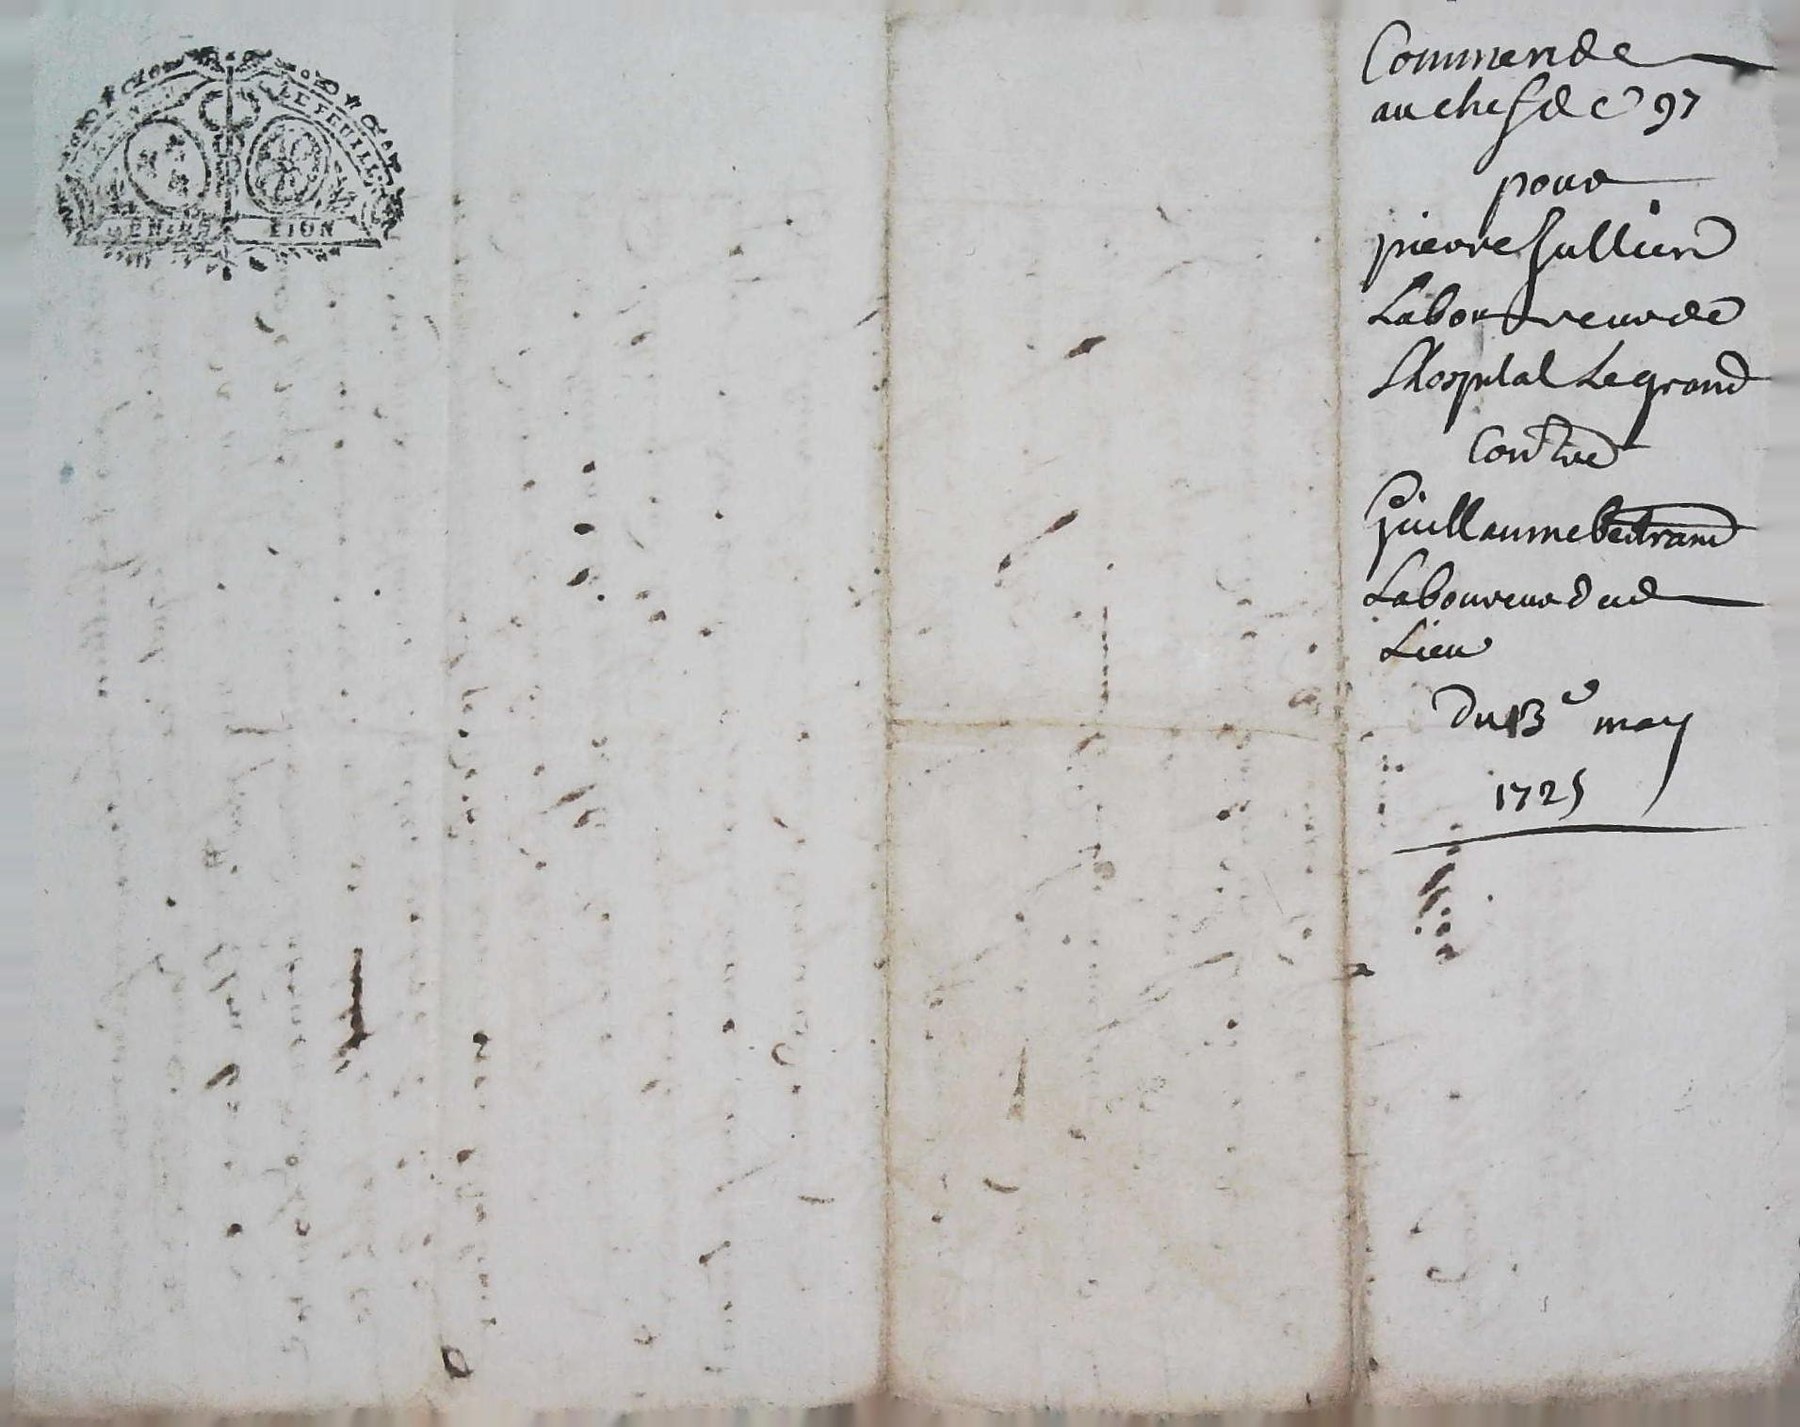 Commende
au chef de 97
pour
pierre Jullien
Laboureur de
Lhospital Le grand
Contre
Guillaume bertrand
Laboureur dud
Lieu
Du 13e may
1725